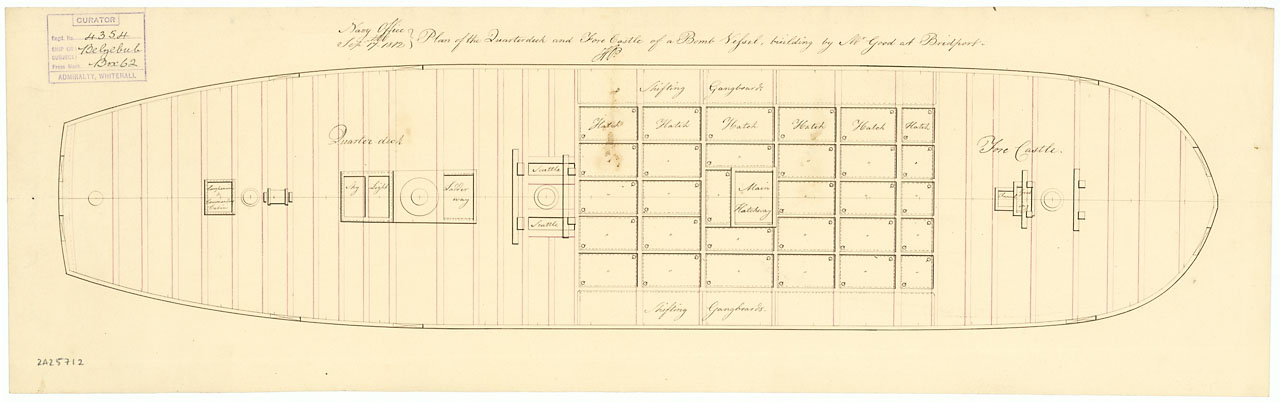 CURATOR
Regd. No. 4354
Belzebub
Box 62
ADMIRALTY, WHITEHALL
Navy Office
Sep. 17 1812
Plan of the Quarterdeck and Fore Castle of a Bomb Vessel, building by Mr Good at Bridport.
Shifting Gangboards
Hatch Hatch Hatch Hatch Hatch Hatch
Quarter deck
Fore Castle.
Seattle
Sky Light
Ladder
way
Main
Hatchway
Companion
to
Commanders
Cabin
Seattle
Shifting Gangboards.
2A25712